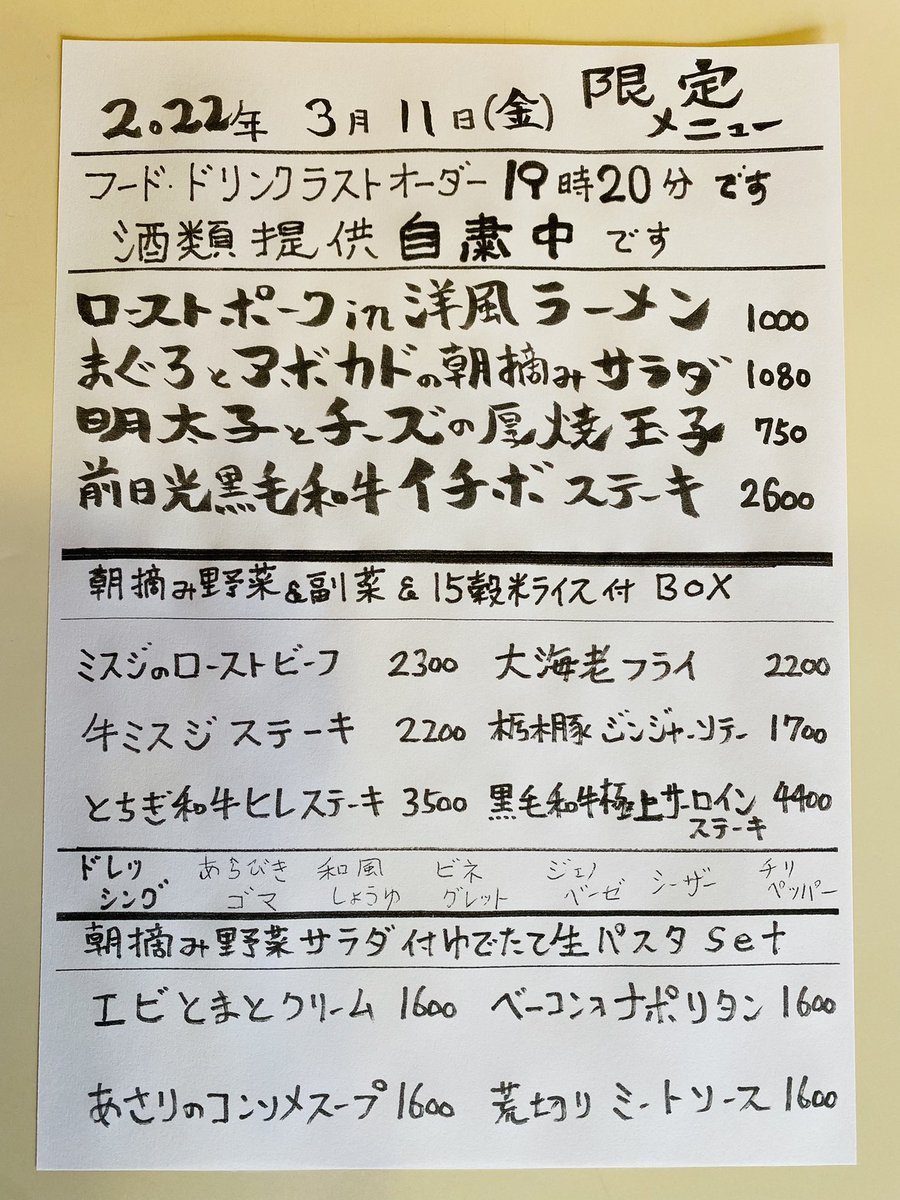 2022年 3月11日(金) 限定メニュー
フード・ドリンクラストオーダー 19時20分です
酒類提供自粛中です
ローストポークin洋風ラーメン 1000
まぐろとアボカドの朝摘みサラダ 1080
明太子とチーズの厚焼玉子 750
前日光黒毛和牛イチボステーキ 2600
朝摘み野菜&副菜&15穀米ライス付 BOX
ミスジのローストビーフ 2300 大海老フライ 2200
牛ミスジステーキ 2200 栃木豚ジンジャーソテー 1700
とちぎ和牛ヒレステーキ 3500 黒毛和牛極上サーロインステーキ 4400
ドレッシング あらびきゴマ 和風しょうゆ ビネグレット ジェノベーゼ シーザー チリペッパー
朝摘み野菜サラダ付ゆでたて生パスタ Set
エビとまとクリーム 1600 ベーコンのナポリタン 1600
あさりのコンソメスープ 1600 荒切りミートソース 1600